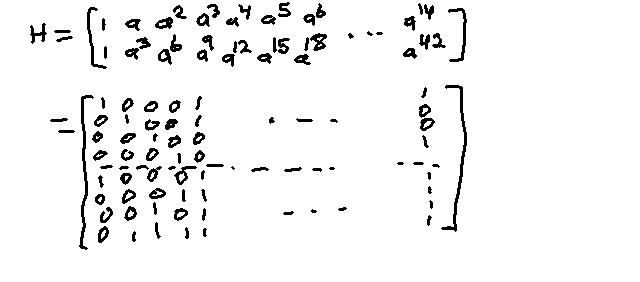 H = [ 1 a a² a³ a⁴ a⁵ a⁶ ... a¹⁴
1 a³ a⁶ a⁹ a¹² a¹⁵ a¹⁸ a⁴² ]
= [ 1 0 0 0 1 1
0 1 0 0 1 . - - 0
0 0 1 0 0 0
0 0 0 1 0 1
- - - - - - - - - - - - -
1 0 0 0 1 1
0 0 0 1 1 1
0 0 1 0 1 - . - 1
0 1 1 1 1 1 ]